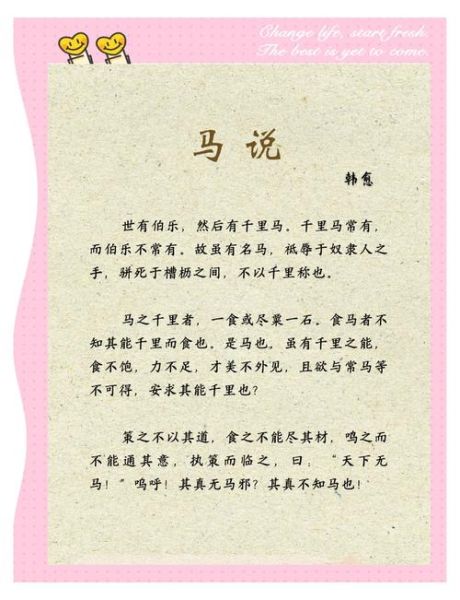 Change life, start fresh.
The best is yet to come.
马说
韩愈
世有伯乐，然后有千里马。千里马常有，
而伯乐不常有。故虽有名马，祗辱于奴隶人之
手，骈死于槽枥之间，不以千里称也。
马之千里者，一食或尽粟一石。食马者不
知其能千里而食也。是马也。虽有千里之能，
食不饱，力不足，才美不外见，且欲与常马等
不可得，安求其能千里也？
策之不以其道，食之不能尽其材，鸣之而
不能通其意，执策而临之，曰：“天下无
马！”呜呼！其真无马邪？其真不知马也！